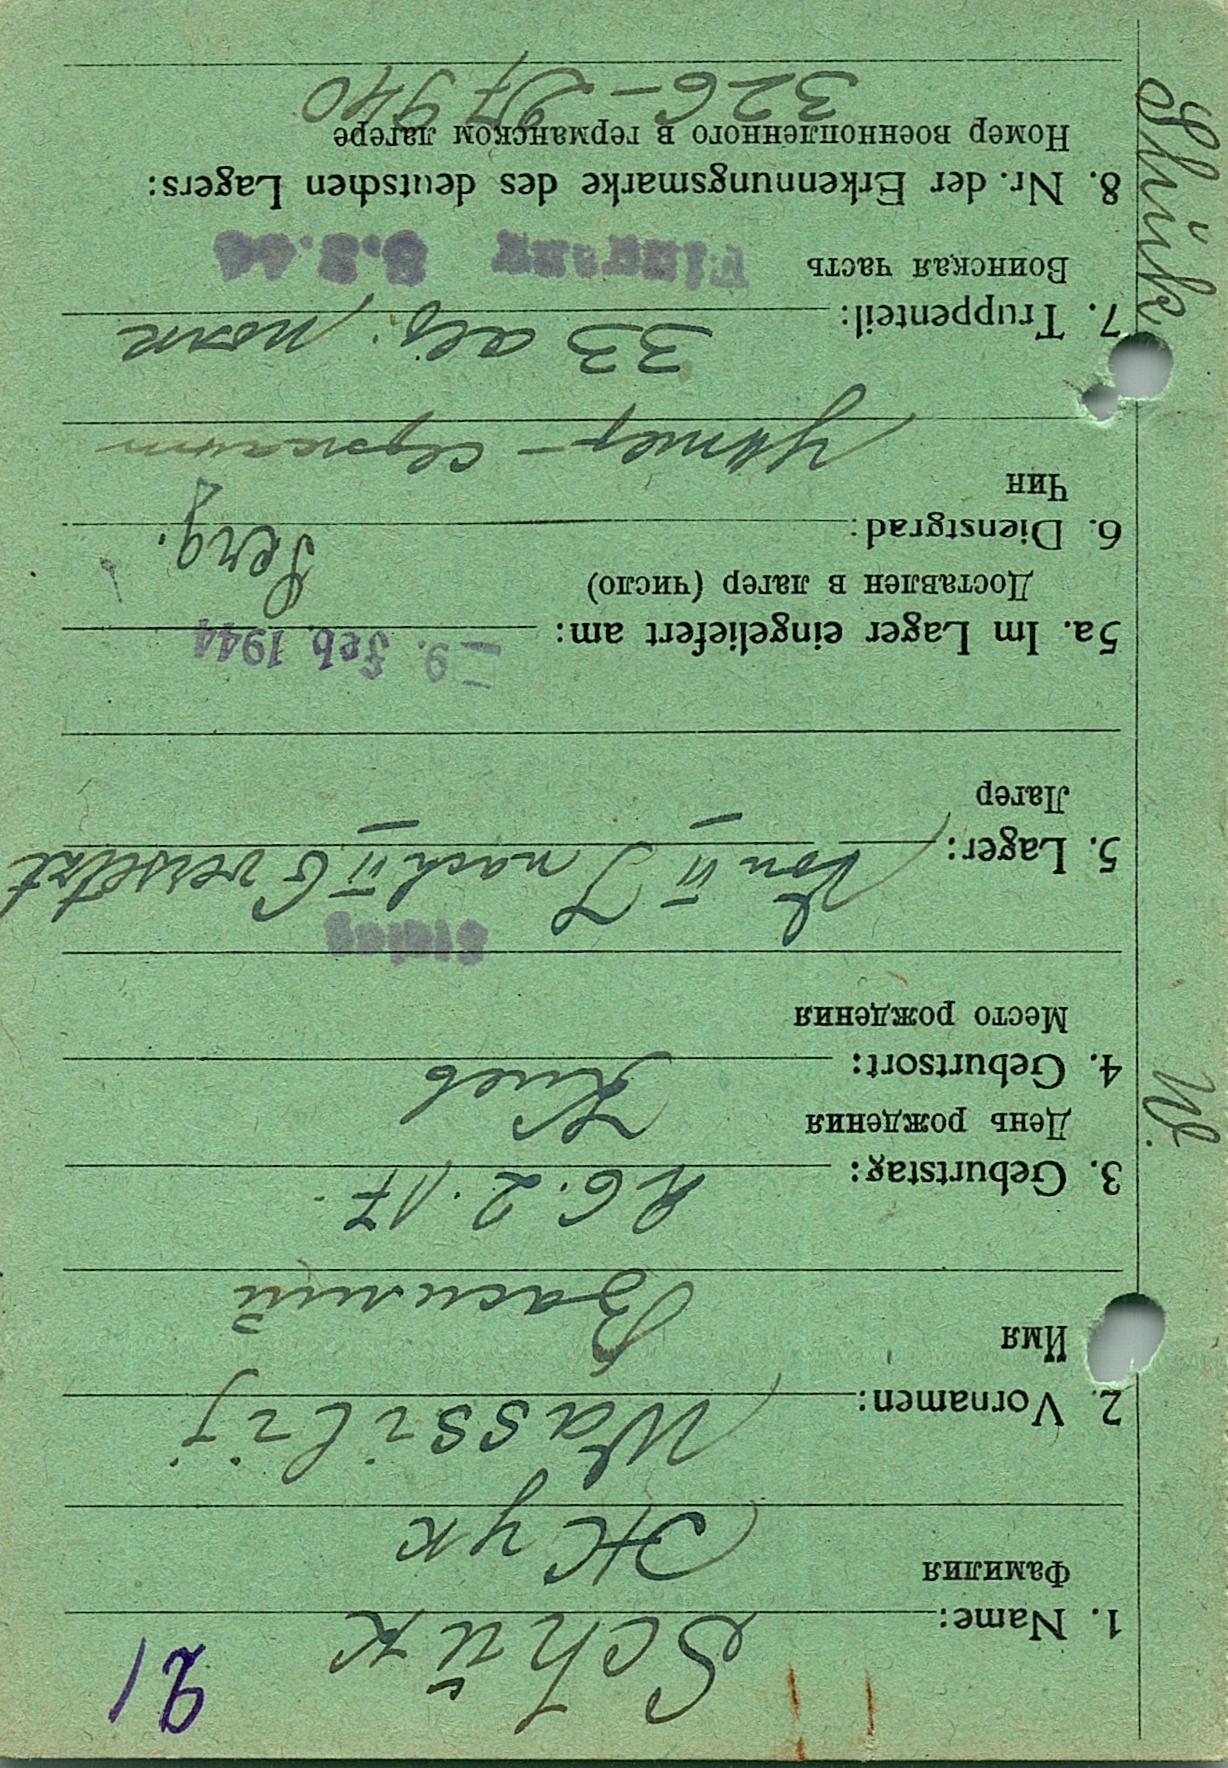 21
1. Name: Schük
Фамилия Жук
2. Vornamen: Wassilij
Имя Василий
3. Geburtstag: 26.2.17.
День рождения
4. Geburtsort: Киев
Место рождения
Stalag
5. Lager: Von II J nach II G versetzt
Лагер
5a. Im Lager eingeliefert am: – 9. Feb. 1944
Доставлен в лагер (число)
Serg.
6. Dienstgrad:
Чин
сержант
7. Truppenteil: 33 полк
Воинская часть
8.2.44
8. Nr. der Erkennungsmarke des deutschen Lagers:
Номер военнопленного в германском лагере
326 – 97940
W. Shük